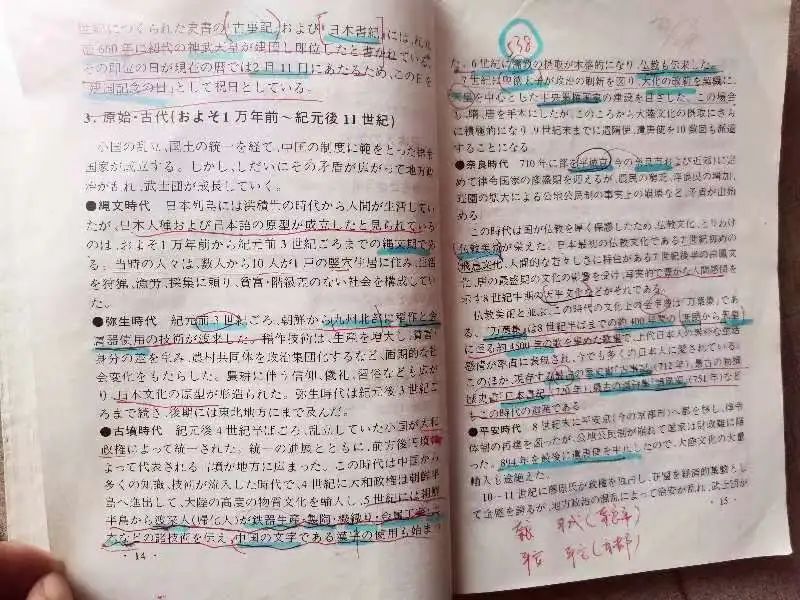 世紀につくられた史書の「古事記」および「日本書紀」には,紀元
前660年に初代の神武天皇が建国し即位したと書かれている。
その即位の日が現在の暦では2月11日にあたるため,この日を
「建国記念の日」として祝日としている。
3. 原始・古代(およそ1万年前～紀元後11世紀)
小国の乱立,国土の統一を経て,中国の制度に範をとった律令
国家が成立する。しかし,しだいにその矛盾が広がって地方政
治が乱れ,武士団が成長していく。
●縄文時代 日本列島には洪積世の時代から人間が生活してい
たが,日本人種および日本語の原型が成立したと見られている
のは,およそ1万年前から紀元前3世紀ごろまでの縄文期であ
る。当時の人々は,数人から10人が1戸の竪穴住居に住み,生活
を狩猟,漁労,採集に頼り,貧富・階級差のない社会を構成してい
た。
●弥生時代 紀元前3世紀ごろ,朝鮮から九州北部に稲作と金
属器使用の技術が渡来した。稲作技術は,生産を増大し,貧富・
身分の差を生み,農村共同体を政治集団化するなど,画期的な社
会変化をもたらした。農耕に伴う信仰,儀礼,習俗なども広が
り,日本文化の原型が形造られた。弥生時代は紀元後3世紀ご
ろまで続き,後期には東北地方にまで及んだ。
●古墳時代 紀元後4世紀半ばごろ,乱立していた小国が大和
政権によって統一された。統一の進展とともに,前方後円墳に
よって代表される古墳が地方に広まった。この時代は中国から
多くの知識,技術が流入した時代で,4世紀に大和政権は朝鮮半
島へ進出して,大陸の高度の物質文化を輸入し,5世紀には朝鮮
半島から渡来人(帰化人)が鉄器生産・製陶・機織り・金属工芸・土
木などの諸技術を伝え,中国の文字である漢字の使用も始まっ
・14・
538
た。6世紀に儒教の摂取が本格的になり,仏教も伝来した。
7世紀は聖徳太子が政治の刷新を図り,大化の改新を契機に,
天皇を中心とした中央集権国家の建設を目ざした。この場合
も,隋,唐を手本にしたが,このころから大陸文化の摂取にさら
に積極的になり,9世紀末までに遣隋使,遣唐使を10数回も派遣
することになる。
●奈良時代 710年に都を平城京(今の奈良市および近郊)に定
めて律令国家の隆盛期を迎えるが,農民の窮乏,浮浪民の増加,
荘園の拡大による公地公民制の事実上の崩壊など,矛盾が出始
める。
この時代は国が仏教を厚く保護したため,仏教文化,とりわけ
仏教美術が栄えた。日本最初の仏教文化である7世紀初めの
飛鳥文化,人間的な若々しさに特色がある7世紀後半の白鳳文
化,唐の最盛期の文化の影響を受け,写実的で豊かな人間感情を
示す8世紀中期の天平文化などがそれである。
仏教美術と並ぶ,この時代の文化上の金字塔は「万葉集」であ
る。「万葉集」は8世紀半ばまでの約400年間の
に至る約4500の歌を集めた歌集で,上代日本人の素朴な生活
感情が率直に表現され,今でも多くの日本人に愛されている。
このほか,現存する最古の歴史書「古事記」(712年),最古の勅撰
歴史書「日本書紀」(720年),最古の漢詩集「懐風藻」(751年)など
もこの時代の遺産である。
●平安時代 8世紀末に平安京(今の京都市)へ都を移し,律令
体制の再建を図ったが,公地公民制が崩れて国家は財政難に陥
った。894年を最後に遣唐使を中止したので,大陸文化の大量
輸入も途絶えた。
10～11世紀に藤原氏が政権を独占し,荘園を経済的基盤とし
て全盛を誇るが,地方政治の混乱によって治安が乱れ,武士団が
・15・